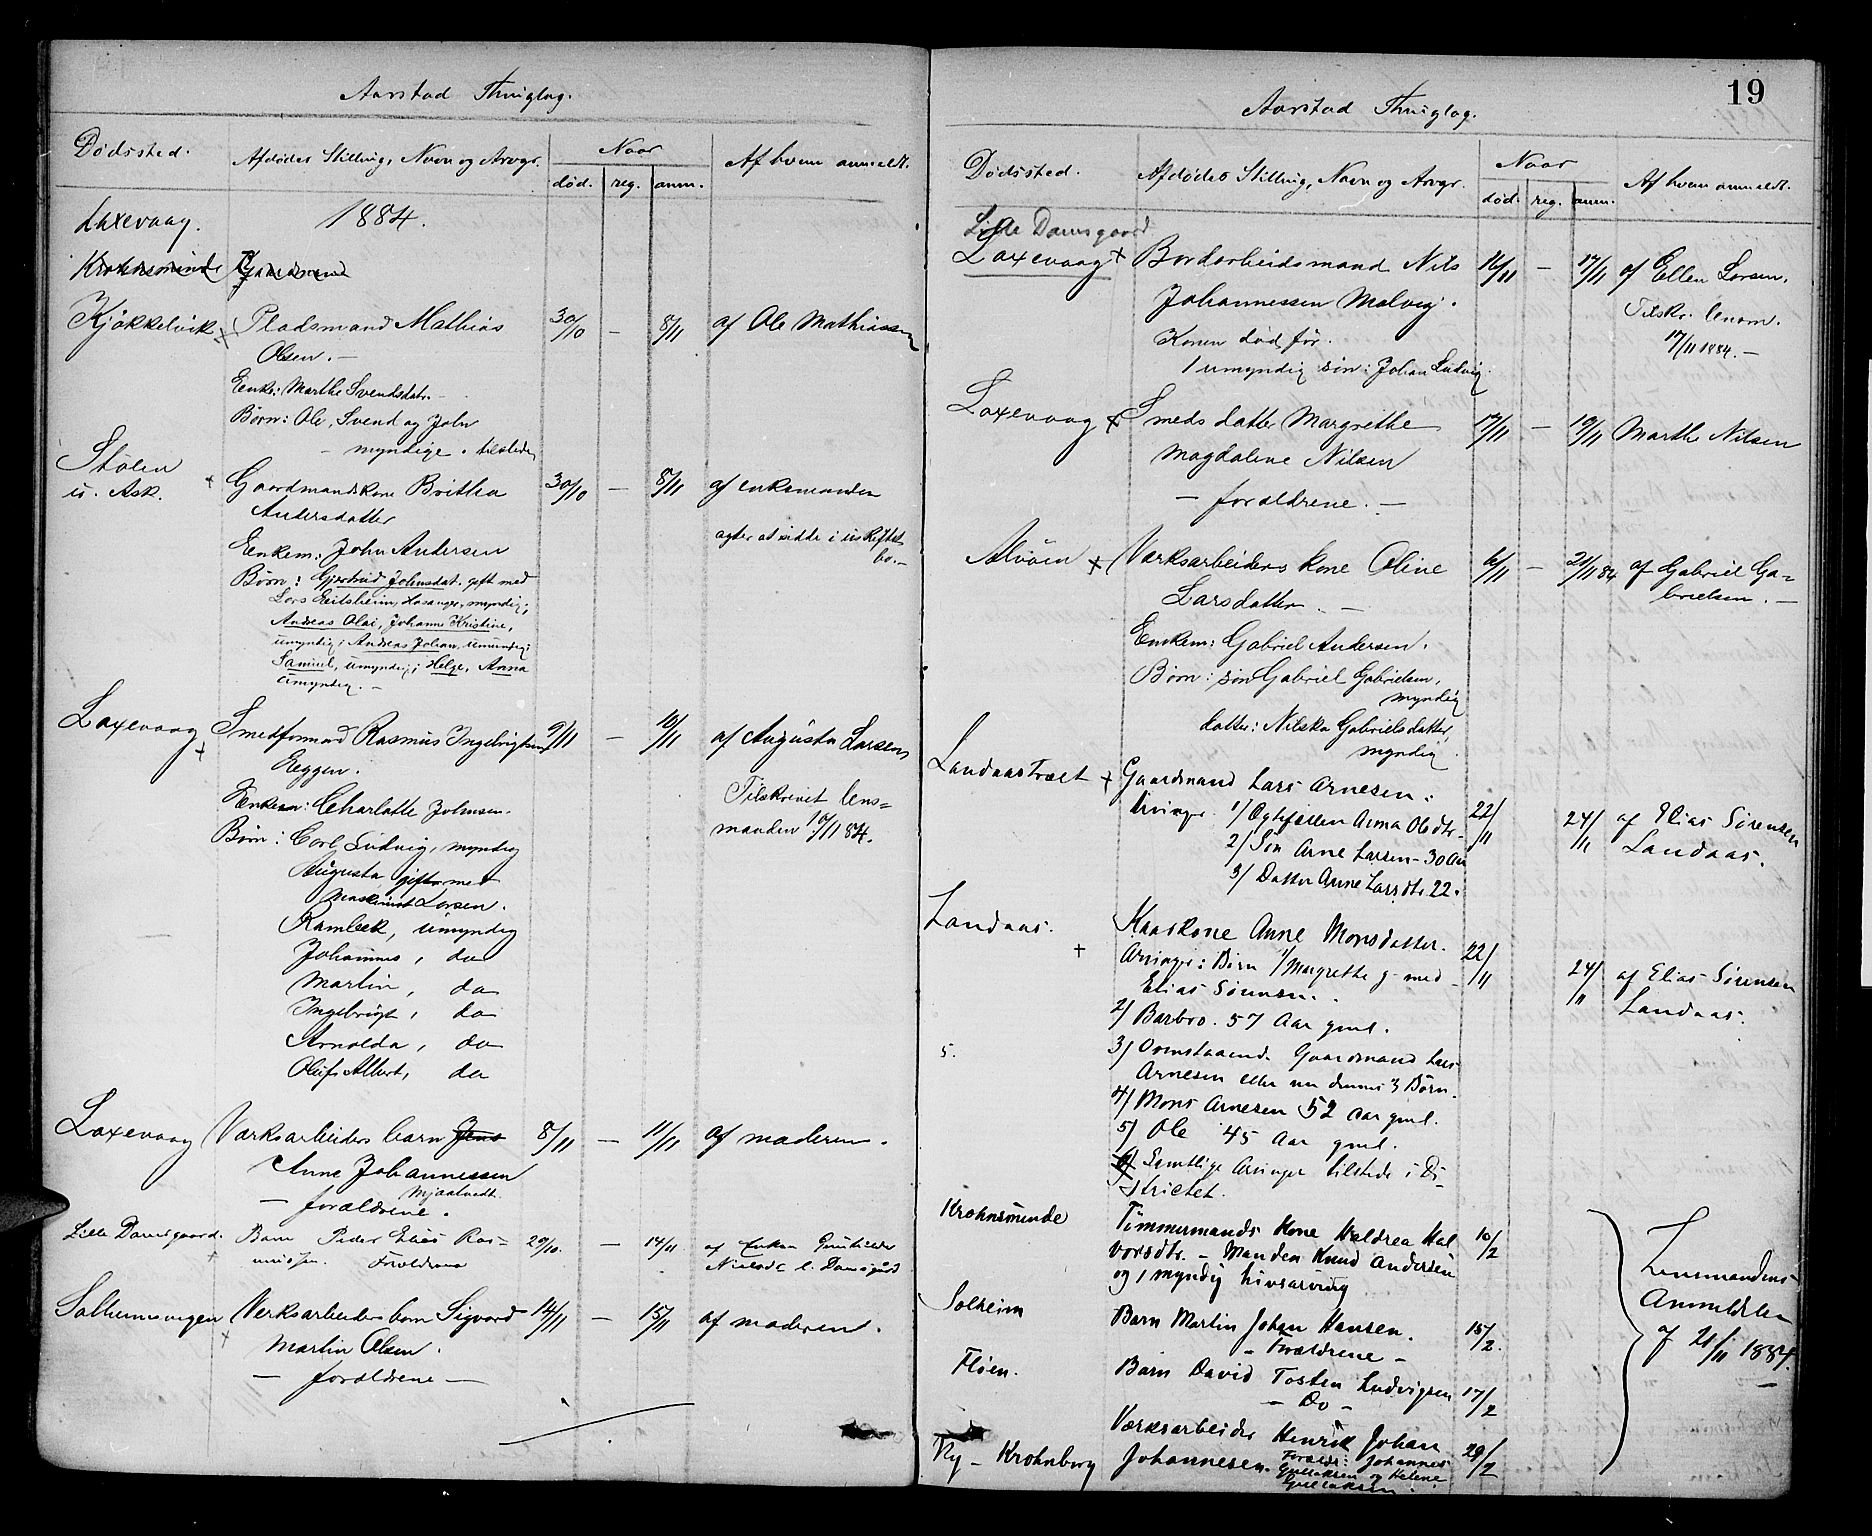 Aarstad Thinglag.
Dødssted. Afdødes Stilling, Navn og Arvgr. Naar Af hvem anmeldt.
død. reg. anm.
Laxevaag. 1884.
Krohnsminde
Kjøkkelvik Pladsmand Mathias 30/10 — 8/11 af Ole Mathiassen
Olsen. —
Enke: Marthe Svendsdatr. —
Børn: Ole, Svend og John
myndige. tilstede
Stølen
u. Ask. Gaardmandskone Britha 30/10 — 8/11 af enkemanden
Andersdatter
agter at sidde i uskiftet
bo. —
Enkem: John Andersen
Børn: Gjertrud Johnsdat. gift med
Lars Eitsheim, Hosanger, myndig;
Andreas Olai, Johanne Kristine,
umyndig; Andreas Johan, umyndig;
Samuel, umyndig; Helge, Anna
umyndig. —
Laxevaag Smedformand Rasmus Ingebrigtsen 9/11 — 10/11 af Augusta Larsen
Eeggen.
Tilskrevet lens=
manden 10/11 84.
Enkem: Charlotte Johnsen.
Børn: Carl Ludvig, myndig
Augusta gift med
Maskinist Larsen.
Rambek, umyndig
Johannes, do
Martin, do
Ingebrigt, do
Arnolda, do
Oluf Albert, do
Laxevaag Værksarbeiders barn Jens 8/11 — 11/11 af moderen.
Anne Johannessen
Mjaatvedt.
— forældrene.
Lille Damsgaard. Barn Peder Elias Ras= 29/10. — 14/11 af Enken Gunhilde
mussen. Forældrene Nielsdr l. Damsgård
Solheimsvigen Værksarbeiders barn Sigvard 14/11 — 15/11 af moderen.
Martin Olsen.
— forældrene —
19
Aarstad Thinglag.
Dødssted. Afdødes Stilling, Navn og Arvgr. Naar Af hvem anmeldt.
død. reg. anm.
Lille Damsgaard
Laxevaag Bordarbeidsmand Nils 16/11 — 17/11 af Ellen Larsen.
Johannessen Malvig.
Tilskr. lensm.
17/11 1884. —
Konen død før.
1 umyndig søn: Johan Ludvig.
Laxevaag Smeds datter Margrethe 17/11 — 19/11 Marthe Nilsen
Magdalene Nilsen
— forældrene. —
Alvøen Værksarbeiders kone Oline 6/11 — 21/11 84 af Gabriel Ga=
Larsdatter. — brielsen. —
Enkem: Gabriel Andersen.
Børn: søn Gabriel Gabrielsen,
myndig
datter: Nilska Gabrielsdatter,
myndig.
Landaastræet Gaardmand Lars Arnesen: 22/11 24/11 af Elias Sørensen
Landaas.
Arvinger 1/ Ægtefællen Anna Olsdtr —
2/ Søn Arne Larsen — 30 Aar
3/ Datter Anne Larsdtr. 22.
Landaas. Kaarkone Anne Monsdatter. 22/11 24/11 af Elias Sørensen
Landaas.
Arvinger: Børn 1/ Margrethe g. med
Elias Sørensen.
2/ Barbro. 57 Aar gml.
5. 3/ Ovenstaaende Gaardmand Lars
Arnesen eller nu dennes 3 Børn.
4/ Mons Arnesen 52 Aar gml.
5/ Ole 45 Aar gml.
Samtlige Arvinger tilstede i Di-
strictet.
Krohnsminde Tømmermands Kone Haldrea Hal 10/2
vorsdtr. — Manden Knud Andersen
og 1 myndig Livsarving
Lensmandens
Anmeldelse
af 21/11 1884.
Solheim Barn Martin Johan Hansen. 15/2.
— Forældrene —
Fløen. Barn David Tosten Ludvigsen 17/2
— Do —
Værksarbeider Henrik Johan
Ny-Krohnborg Johannesen. 29/2
Forældr: Johannes
Gulleksen og Helene
Gulleksen.